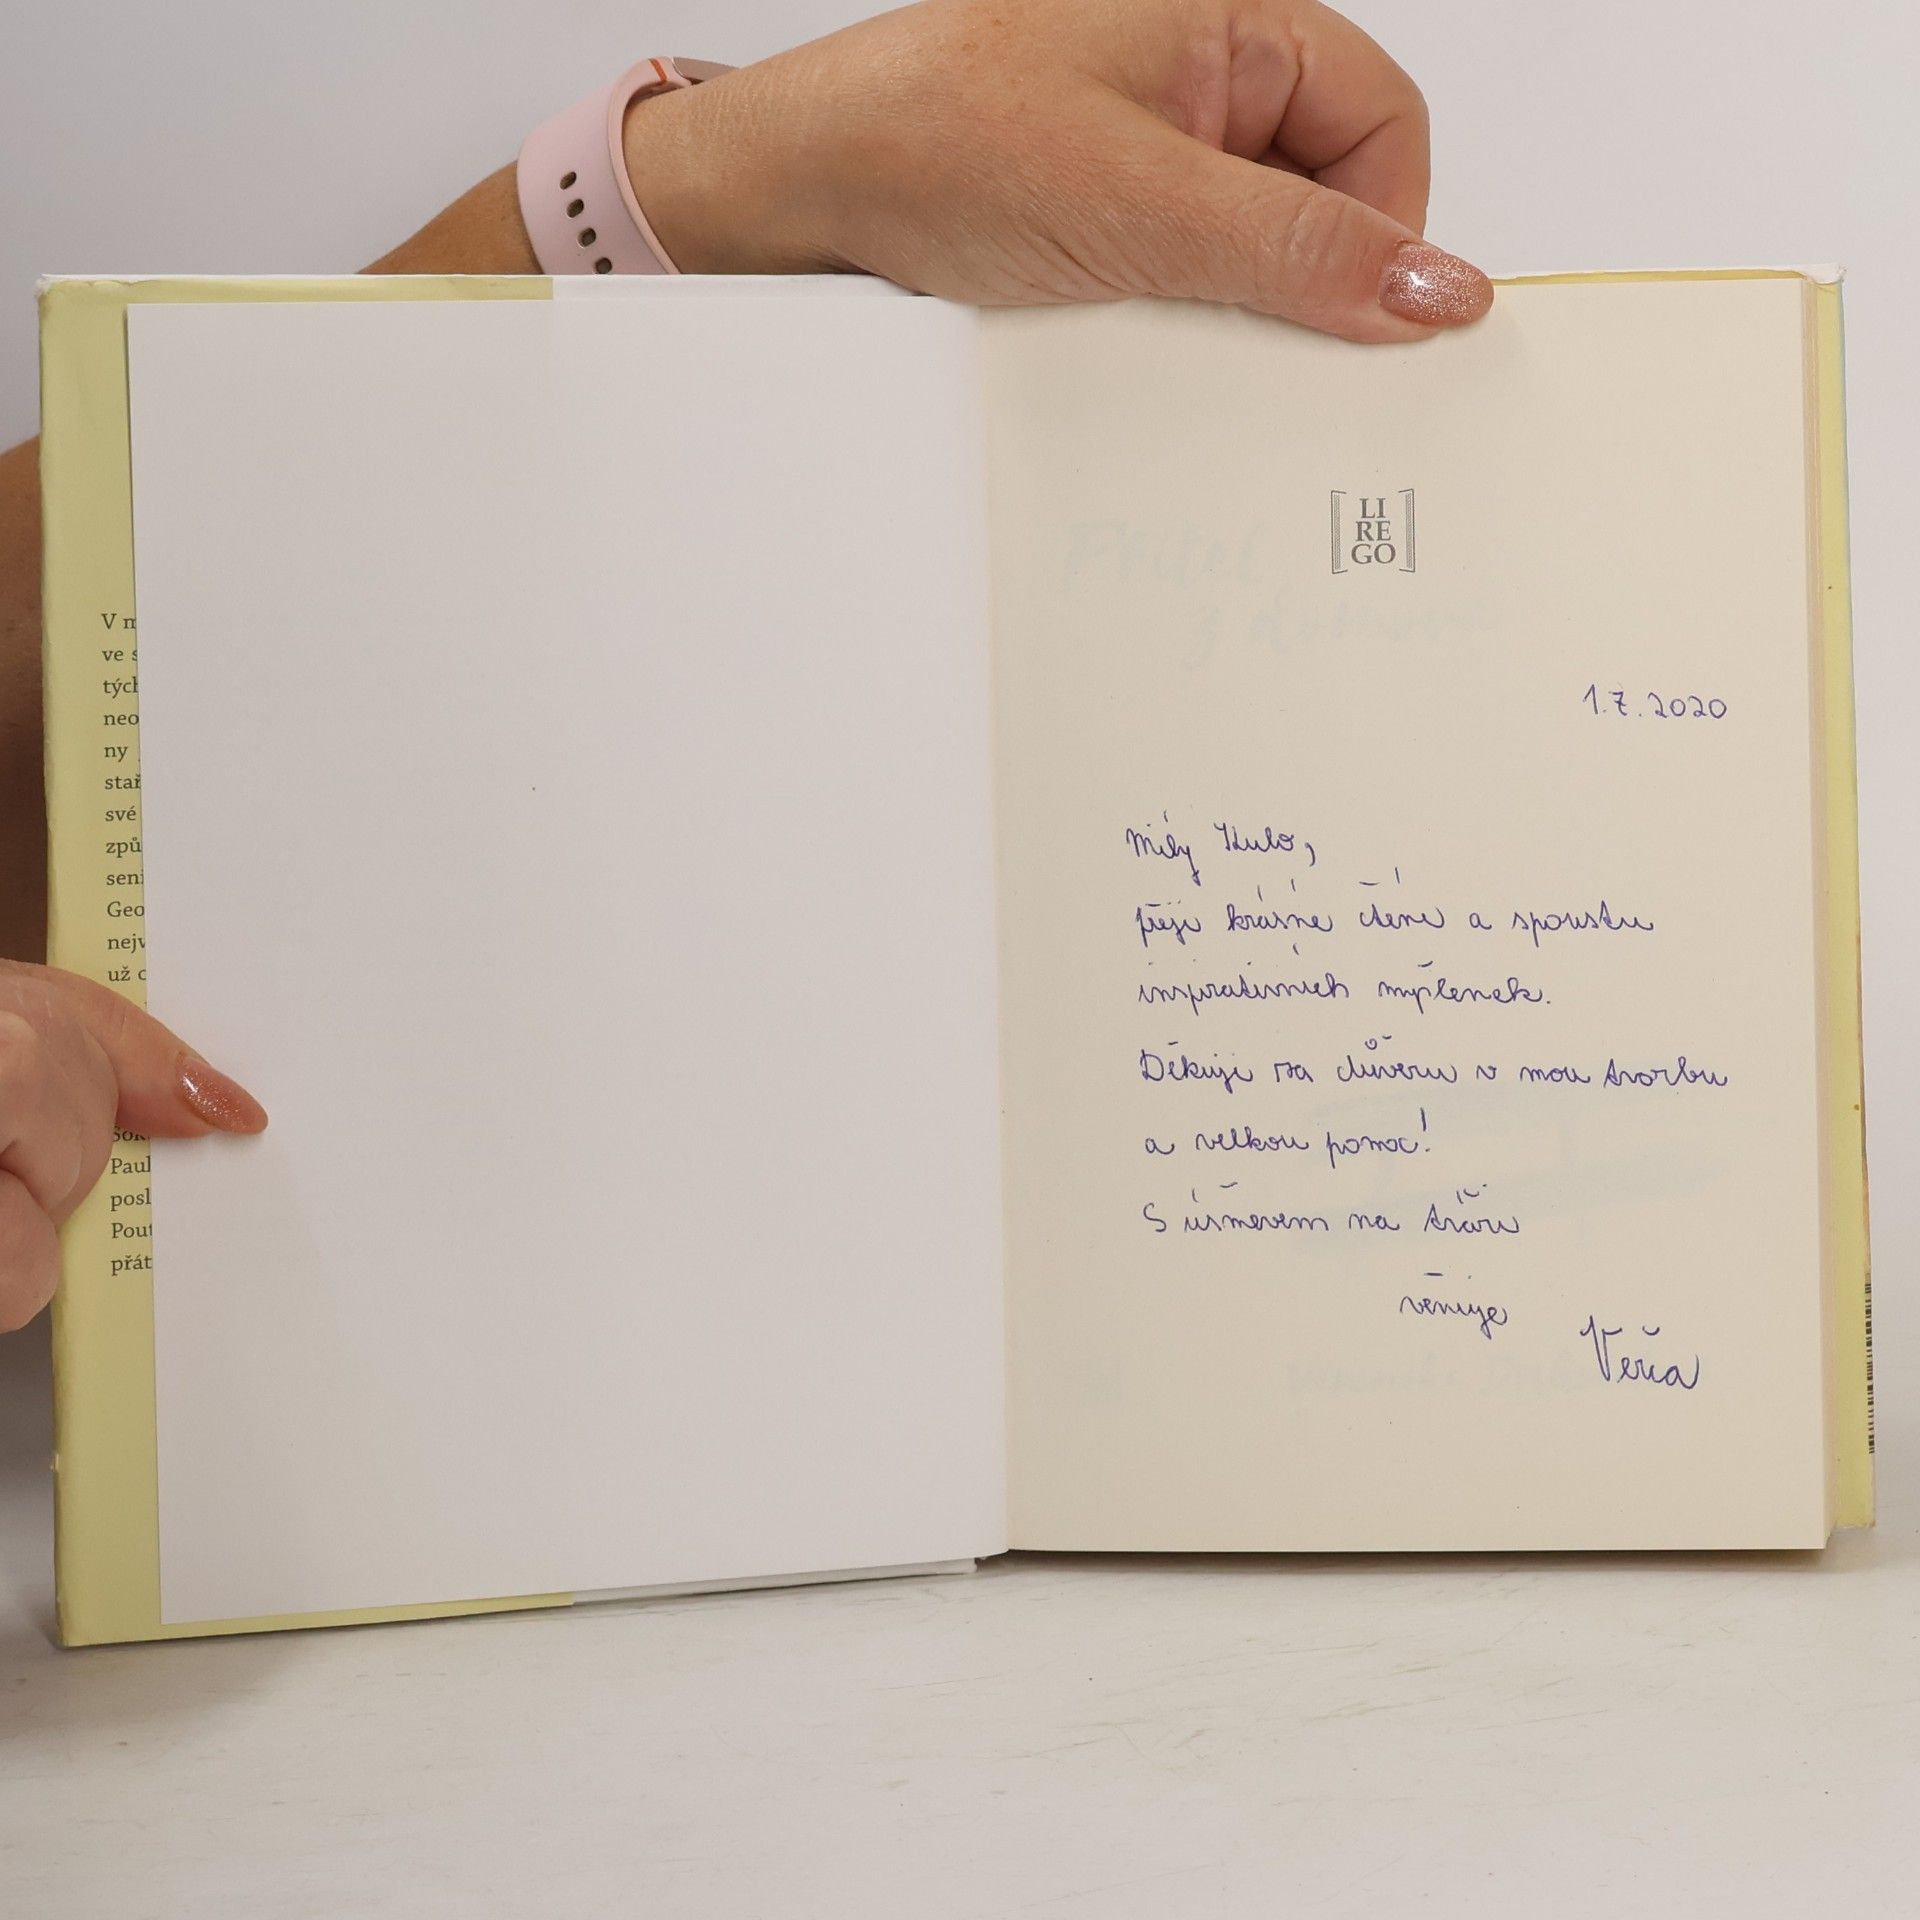 V m
ve s
tých
neo
ny
stař
své
způ
seni
Geo
nejv
už o
Sok
Paul
posl
Pout
přát
LI
RE
GO
1.7.2020
Milý Kubo,
přeji krásné čtení a spoustu
inspirativních myšlenek.
Děkuji za důvěru v mou tvorbu
a velkou pomoc!
S úsměvem na tváři
věnuje
Verča